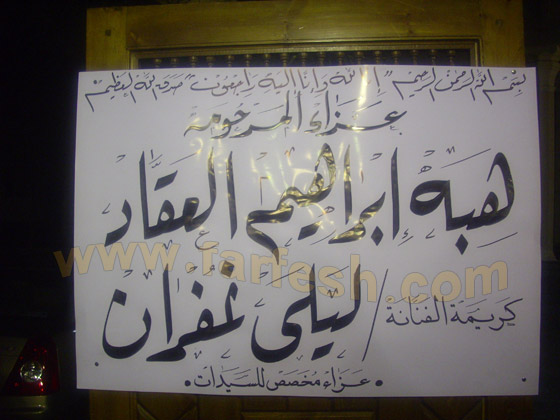 بسم الله الرحمن الرحيم "إنا لله وإنا إليه راجعون" صدق الله العظيم
عزاء المرحومة
هبة إبراهيم العقاد
كريمة الفنانة / ليلى غفران
• عزاء مخصص للسيدات •
www.farfesh.com